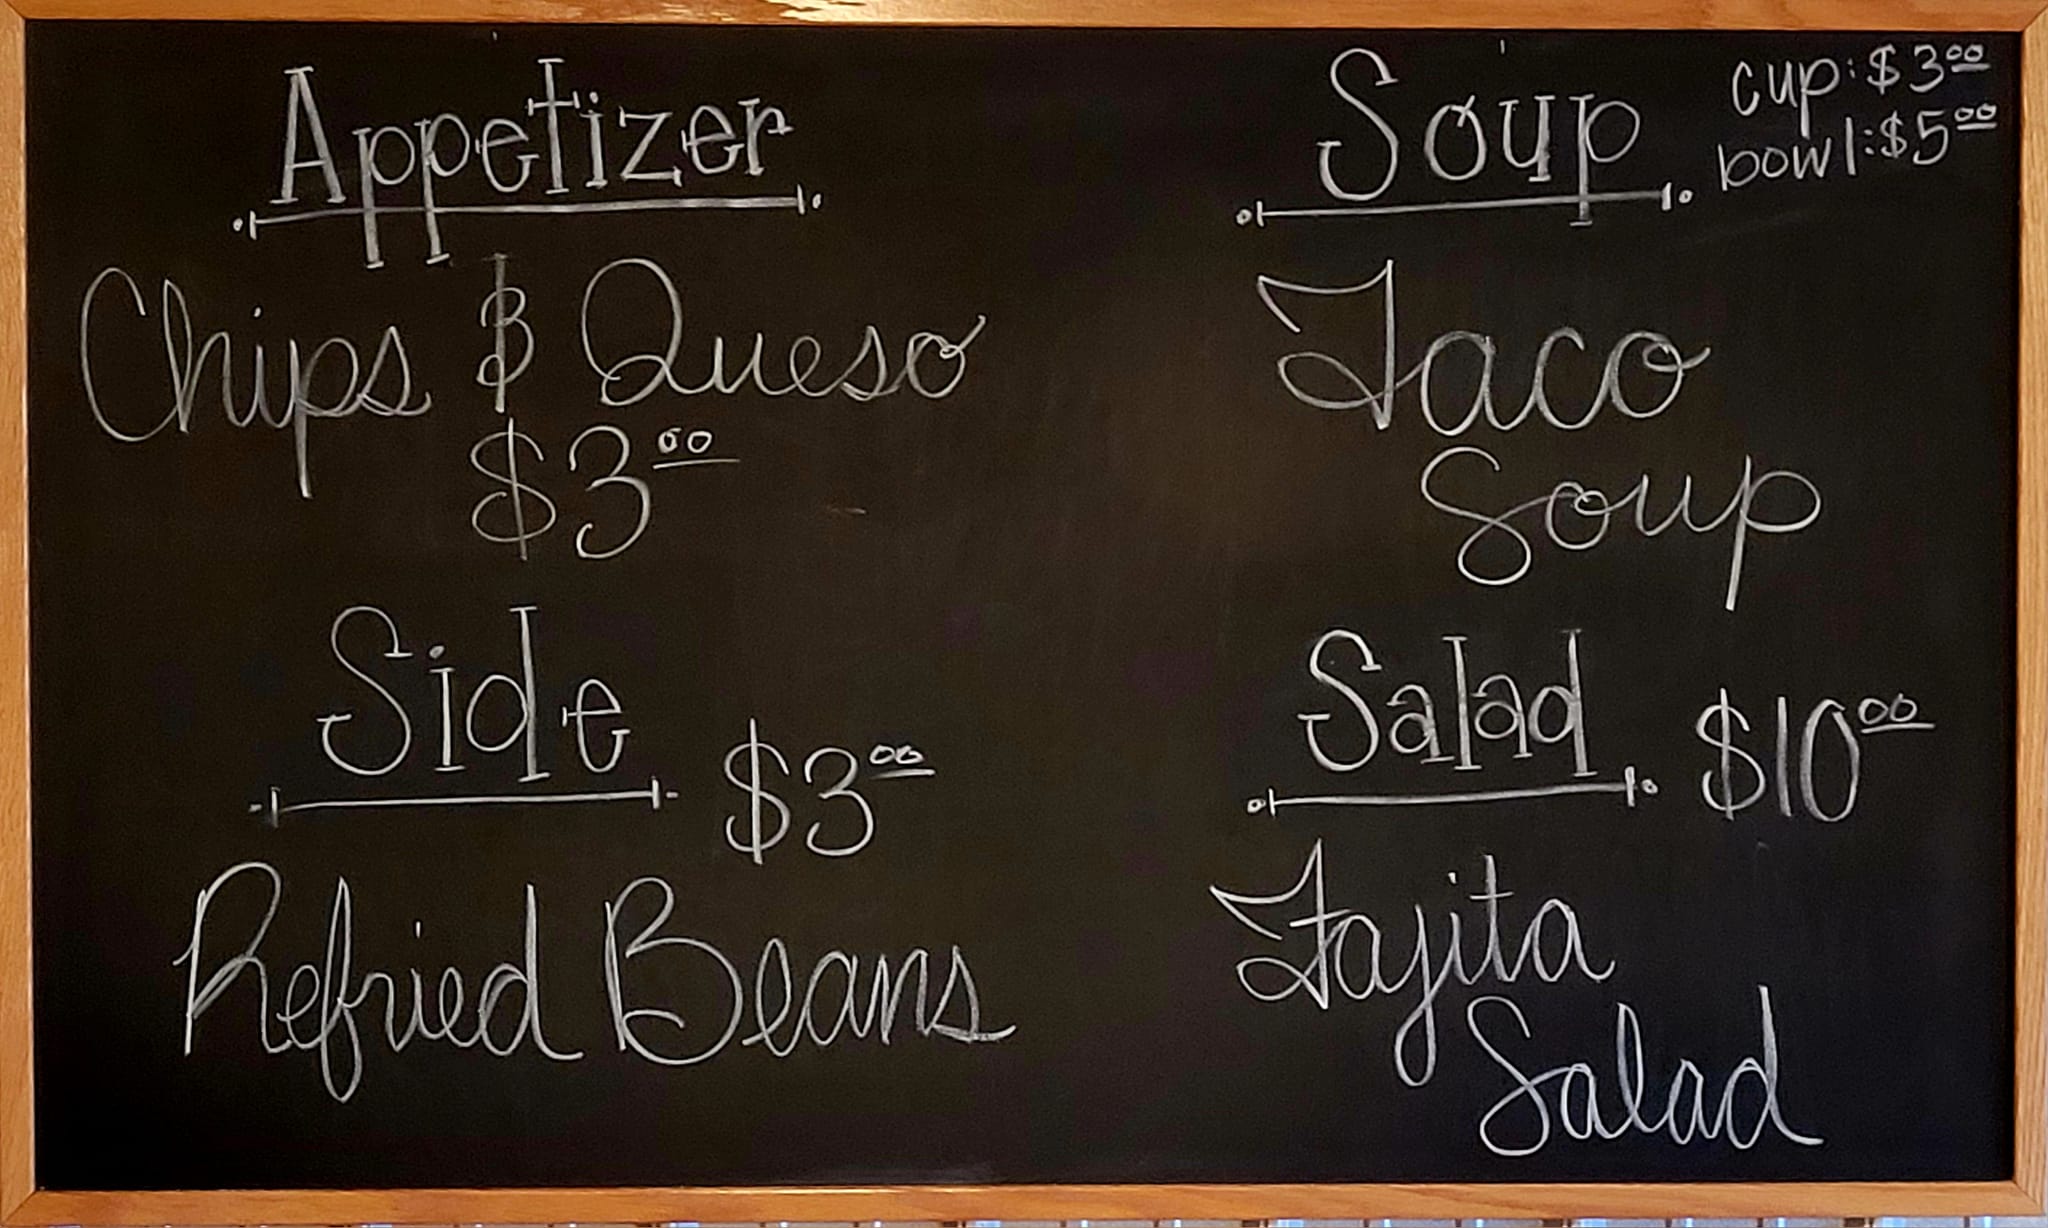 Appetizer
Chips & Queso
$3.00
Side $3.00
Refried Beans
Soup
cup: $3.00
bowl: $5.00
Taco
Soup
Salad $10.00
Fajita
Salad